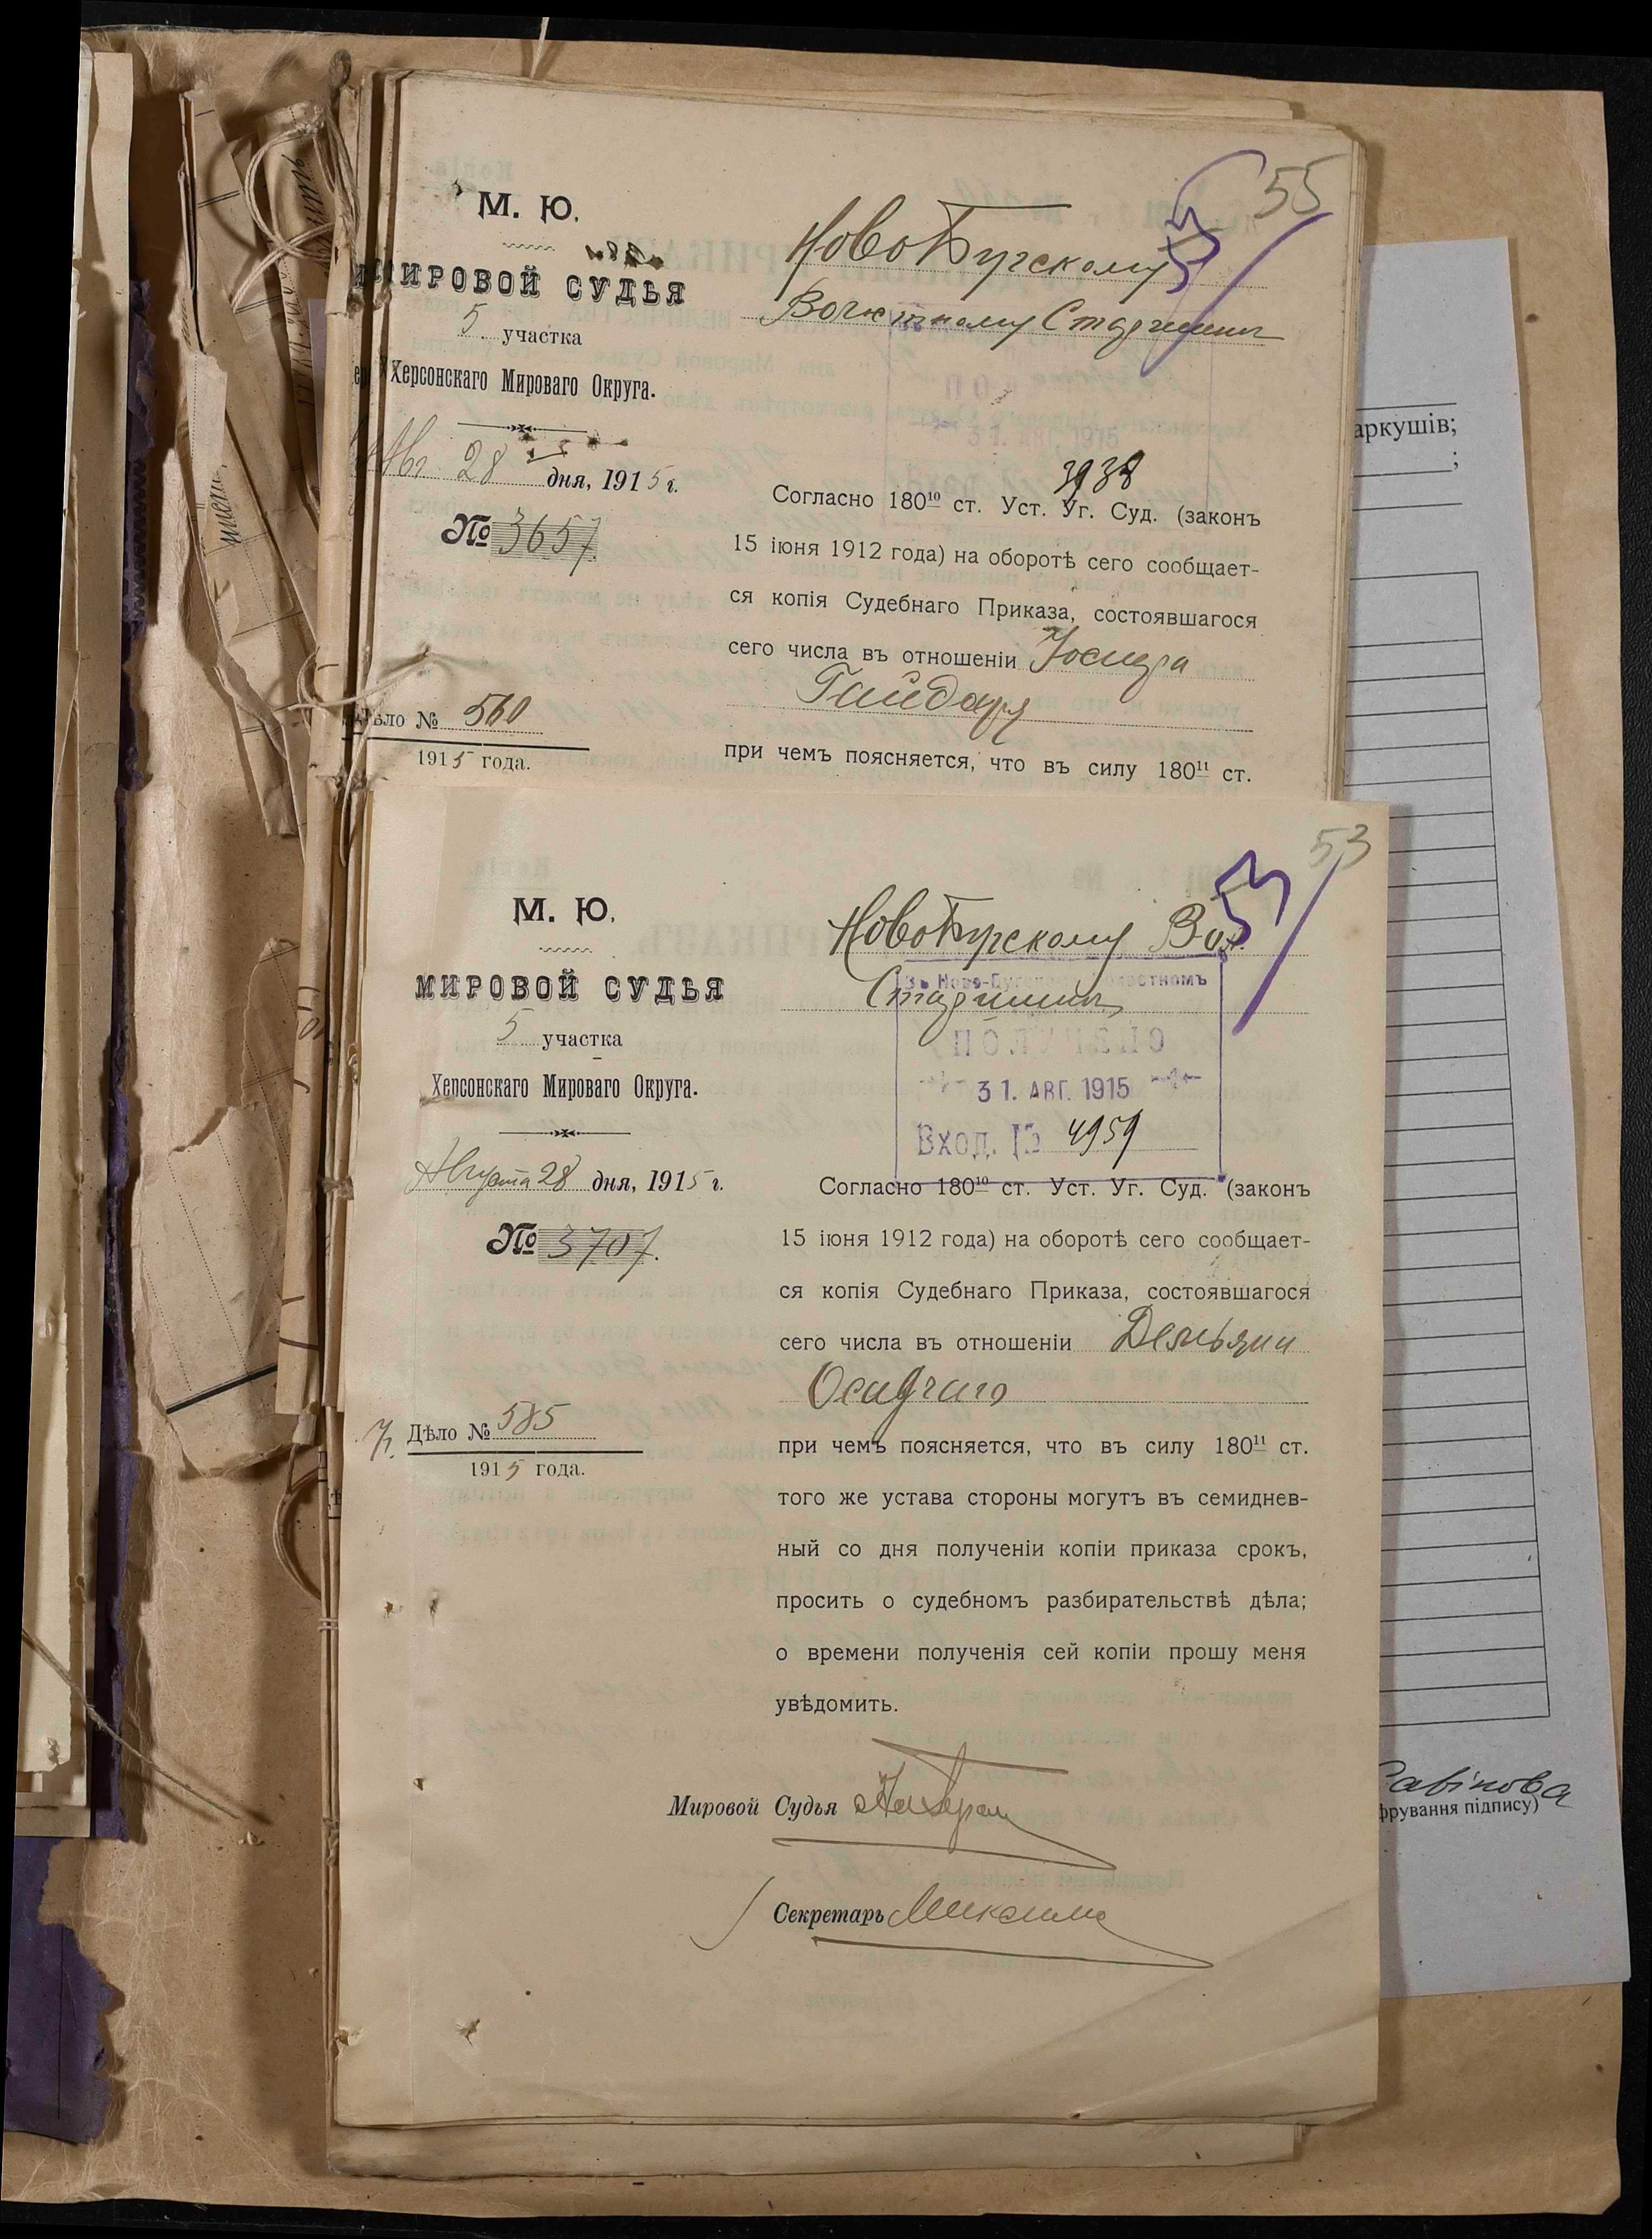 55
М. Ю.
МИРОВОЙ СУДЬЯ
5 участка
Херсонскаго Мироваго Округа.
Авг 28 дня, 1915 г.
№ 3657
Дѣло № 560
1915 года.
НовоБугскому
Волостному Старшинѣ
31. АВГ. 1915
3938
Согласно 180¹⁰ ст. Уст. Уг. Суд. (законъ
15 іюня 1912 года) на оборотѣ сего сообщает-
ся копія Судебнаго Приказа, состоявшагося
сего числа въ отношеніи Іосифа
Гайдаря
при чемъ поясняется, что въ силу 180¹¹ ст.
53
М. Ю.
МИРОВОЙ СУДЬЯ
5 участка
Херсонскаго Мироваго Округа.
Августа 28 дня, 1915 г.
№ 3707.
Дѣло № 585
1915 года.
НовоБугскому Вол.
Старшинѣ
31. АВГ. 1915
Вход. № 4959
Согласно 180¹⁰ ст. Уст. Уг. Суд. (законъ
15 іюня 1912 года) на оборотѣ сего сообщает-
ся копія Судебнаго Приказа, состоявшагося
сего числа въ отношеніи Демьяна
Осадчаго
при чемъ поясняется, что въ силу 180¹¹ ст.
того же устава стороны могутъ въ семиднев-
ный со дня полученіи копіи приказа срокъ,
просить о судебномъ разбирательствѣ дѣла;
о времени полученія сей копіи прошу меня
увѣдомить.
Мировой Судья
Секретарь
аркушів;
;
Савінова
фрування підпису)